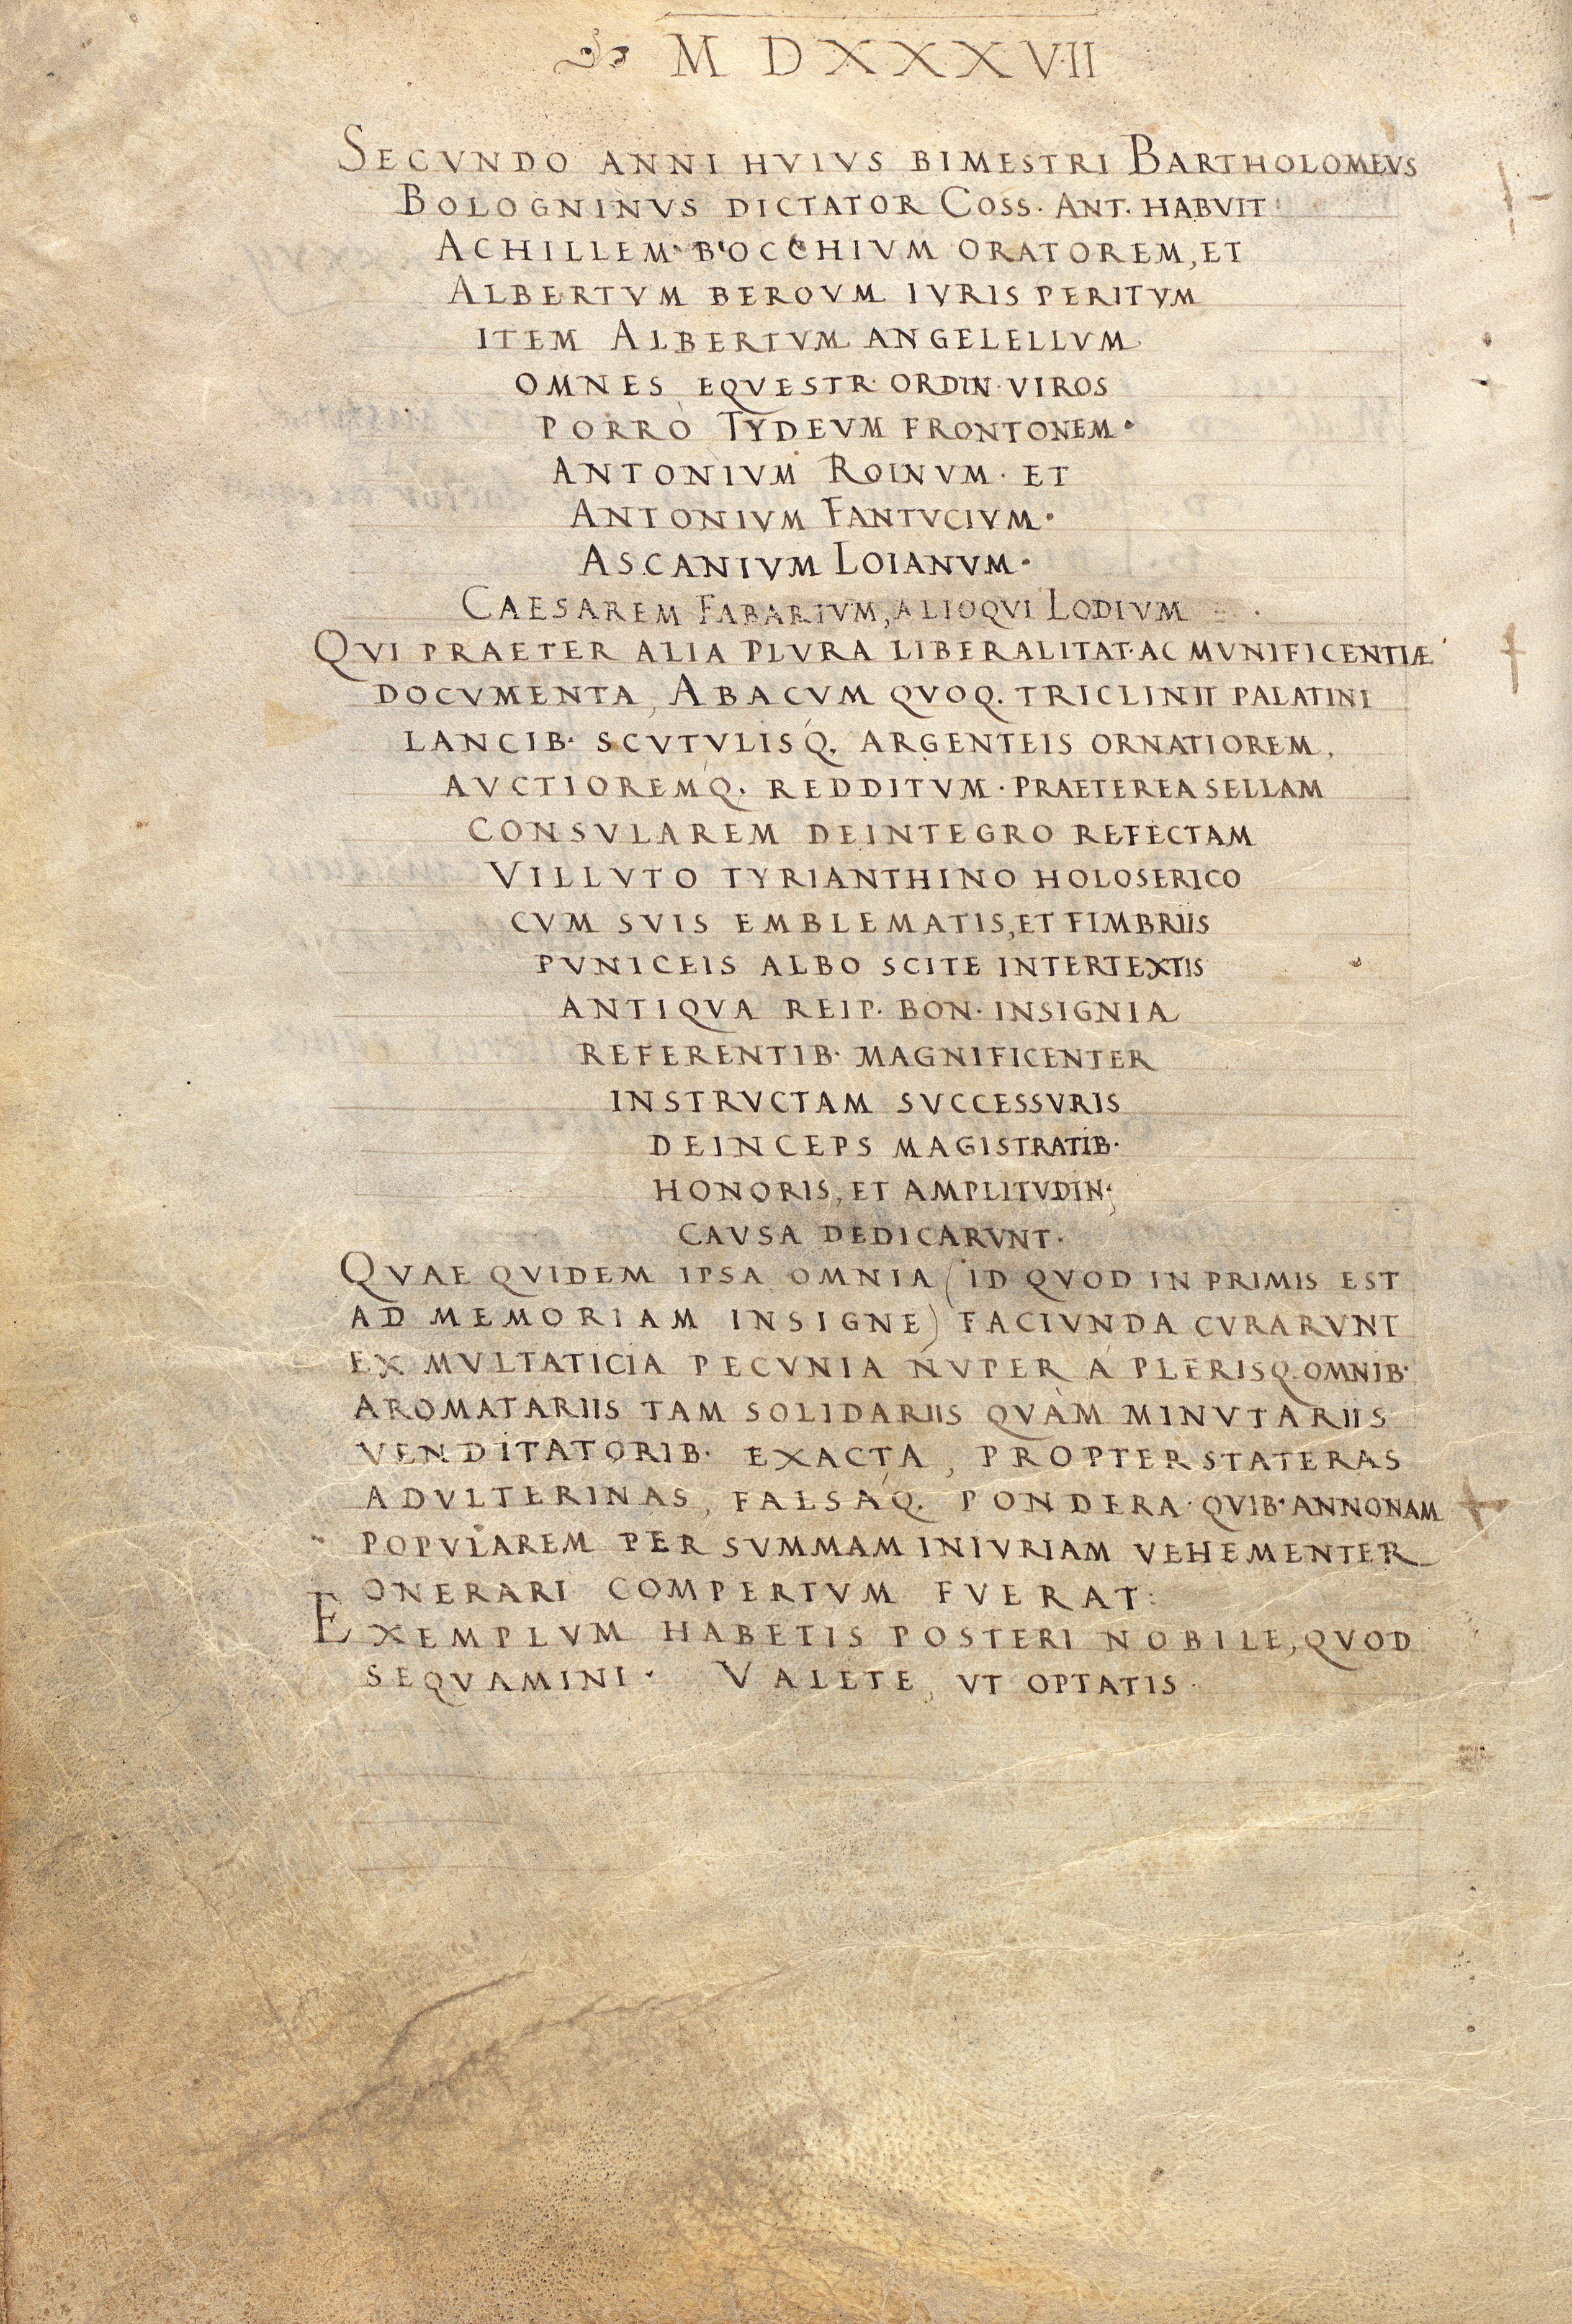 M D X X X V·II
SECVNDO ANNI HVIVS BIMESTRI BARTHOLOMEVS
BOLOGNINVS DICTATOR COSS. ANT. HABVIT
ACHILLEM BOCCHIVM ORATOREM, ET
ALBERTVM BEROVM IVRIS PERITVM
ITEM ALBERTVM ANGELELLVM
OMNES EQVESTR· ORDIN· VIROS
PORRÒ TYDEVM FRONTONEM·
ANTONIVM ROINVM· ET
ANTONIVM FANTVCIVM·
ASCANIVM LOIANVM·
CAESAREM FABARIVM, ALIOQVI LODIVM
QVI PRAETER ALIA PLVRA LIBERALITAT· AC MVNIFICENTIÆ
DOCVMENTA, ABACVM QVOQ. TRICLINII PALATINI
LANCIB· SCVTVLISQ́. ARGENTEIS ORNATIOREM,
AVCTIOREMQ́. REDDITVM· PRAETEREA SELLAM
CONSVLAREM DEINTEGRO REFECTAM
VILLVTO TYRIANTHINO HOLOSERICO
CVM SVIS EMBLEMATIS, ET FIMBRIIS
PVNICEIS ALBO SCITE INTERTEXTIS
ANTIQVA REIP. BON· INSIGNIA
REFERENTIB· MAGNIFICENTER
INSTRVCTAM SVCCESSVRIS
DEINCEPS MAGISTRATIB·
HONORIS, ET AMPLITVDIN·
CAVSA DEDICARVNT·
QVAE QVIDEM IPSA OMNIA (ID QVOD IN PRIMIS EST
AD MEMORIAM INSIGNE) FACIVNDA CVRARVNT
EX MVLTATICIA PECVNIA NVPER Á PLERISQ. OMNIB·
AROMATARIIS TAM SOLIDARIIS QVÀM MINVTARIIS
VENDITATORIB· EXACTA, PROPTER STATERAS
ADVLTERINAS, FALSAQ́. PONDERA· QVIB· ANNONAM
POPVLAREM PER SVMMAM INIVRIAM VEHEMENTER
ONERARI COMPERTVM FVERAT:
EXEMPLVM HABETIS POSTERI NOBILE, QVOD
SEQVAMINI· VALETE, VT OPTATIS·